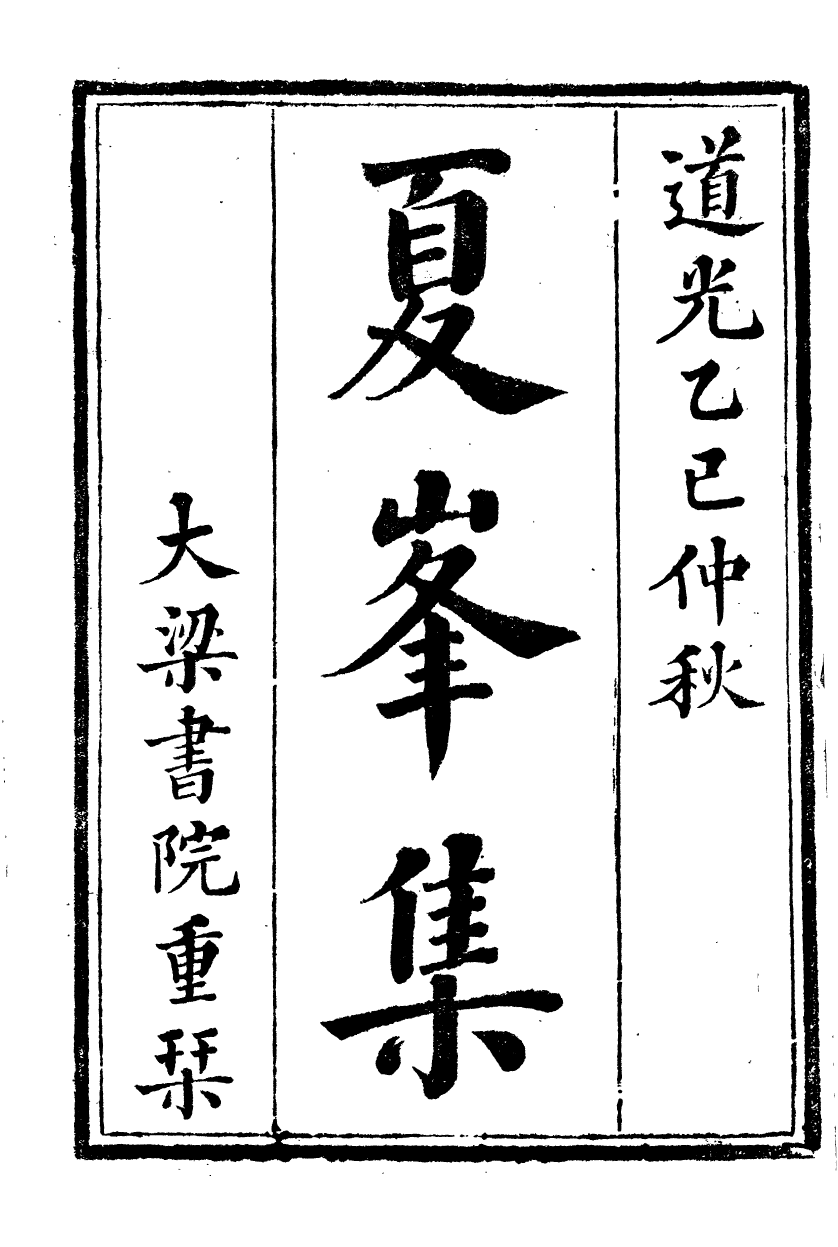 道光乙巳仲秋
夏峯集
大梁書院重栞